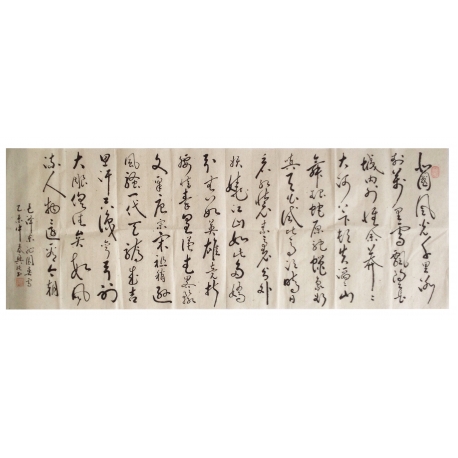 北国风光千里冰
封万里雪飘望长
城内外惟余莽々
大河上下顿失滔々山
舞银蛇原驰蜡象欲
与天公试比高须晴日
看红装素裹分外
妖娆江山如此多娇
引无数英雄竞折
腰惜秦皇汉武略输
文采唐宗宋祖稍逊
风骚一代天骄成吉
思汗只识弯弓射
大雕俱往矣数风
流人物还看今朝
毛泽东沁园春雪
乙未年